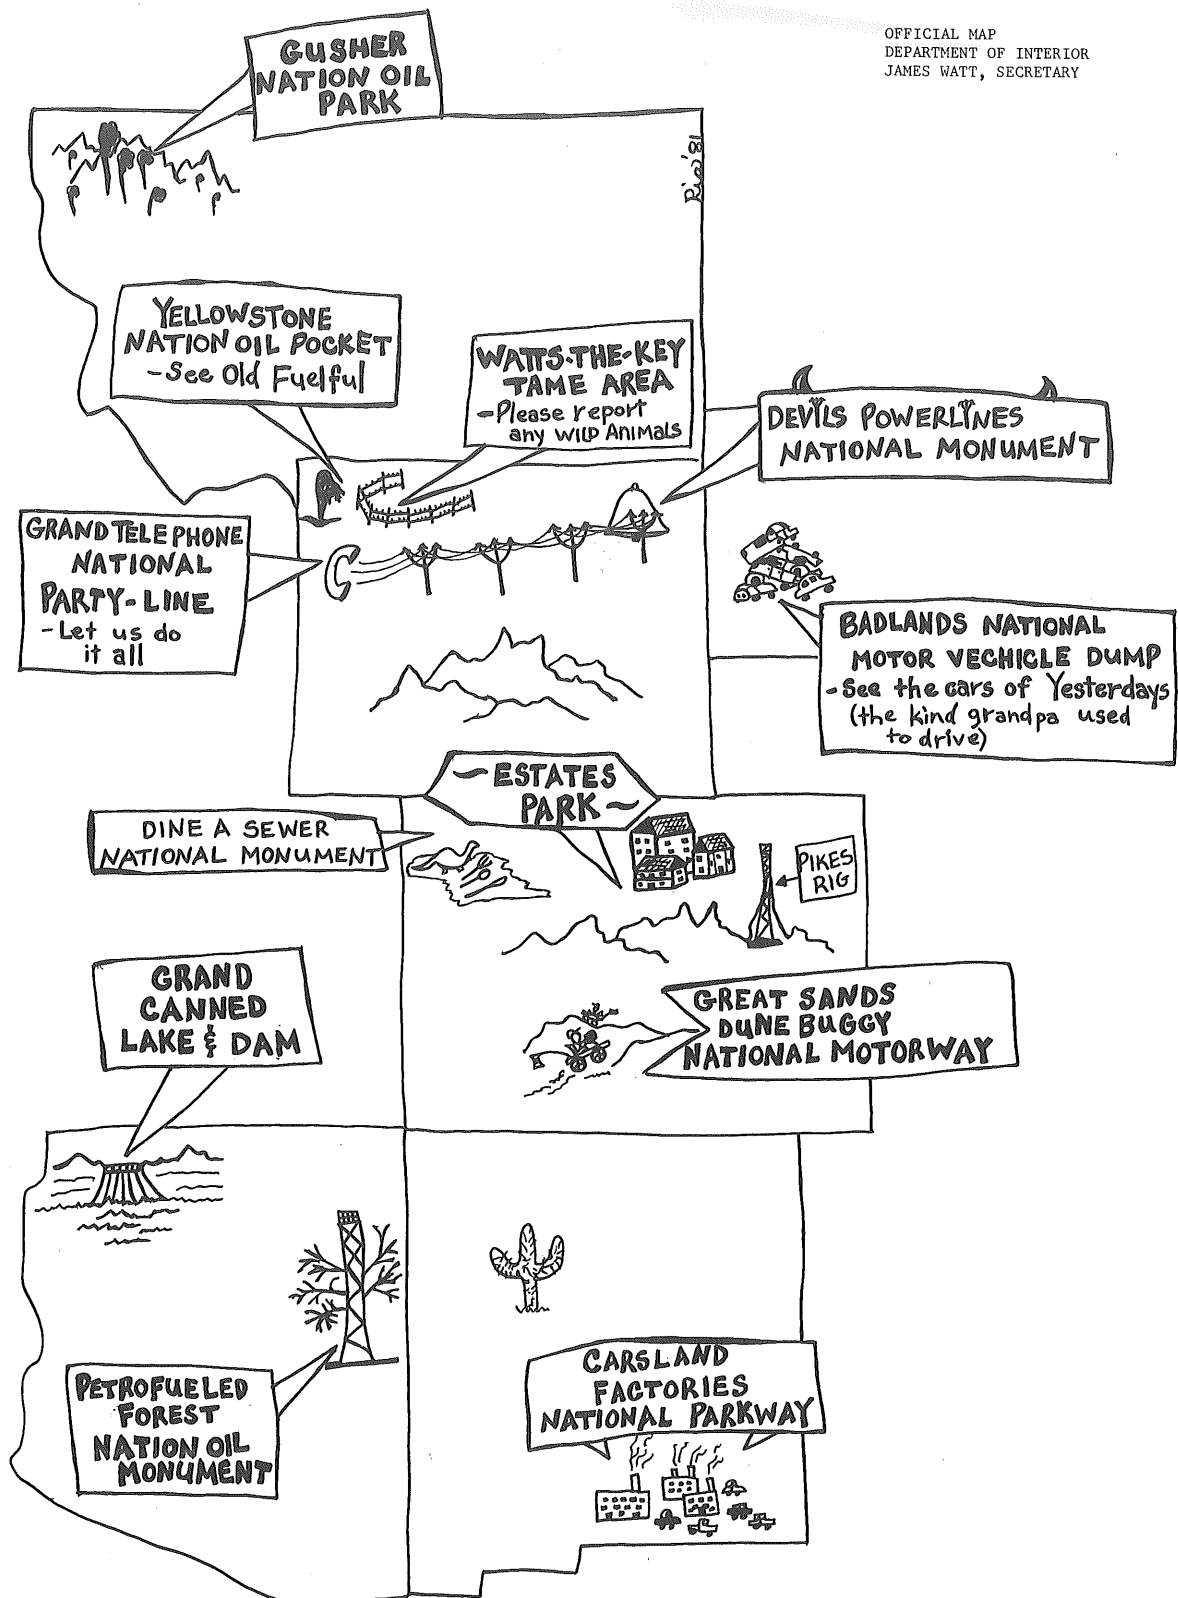 OFFICIAL MAP
DEPARTMENT OF INTERIOR
JAMES WATT, SECRETARY
GUSHER
NATION OIL
PARK
Rio '81
YELLOWSTONE
NATION OIL POCKET
-See Old Fuelful
WATTS-THE-KEY
TAME AREA
-Please report
any WILD ANIMALS
DEVILS POWERLINES
NATIONAL MONUMENT
GRAND TELEPHONE
NATIONAL
PARTY-LINE
-Let us do
it all
BADLANDS NATIONAL
MOTOR VECHICLE DUMP
-See the cars of Yesterdays
(the kind grandpa used
to drive)
~ESTATES
PARK~
DINE A SEWER
NATIONAL MONUMENT
PIKES
RIG
GRAND
CANNED
LAKE & DAM
GREAT SANDS
DUNE BUGGY
NATIONAL MOTORWAY
PETROFUELED
FOREST
NATION OIL
MONUMENT
CARSLAND
FACTORIES
NATIONAL PARKWAY